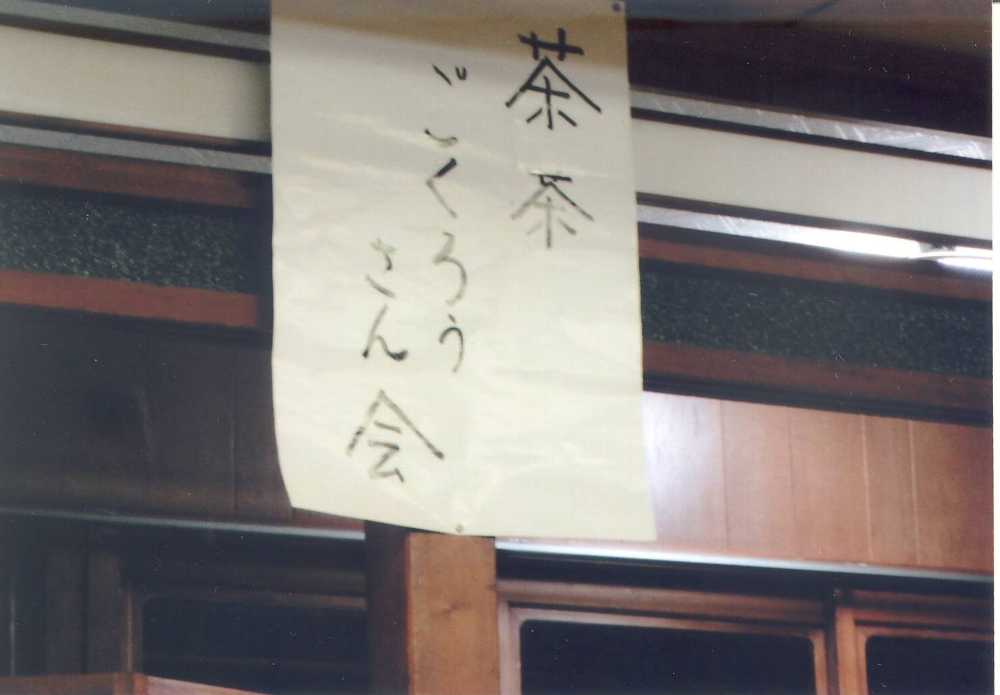 茶茶
ごくろう
さん会